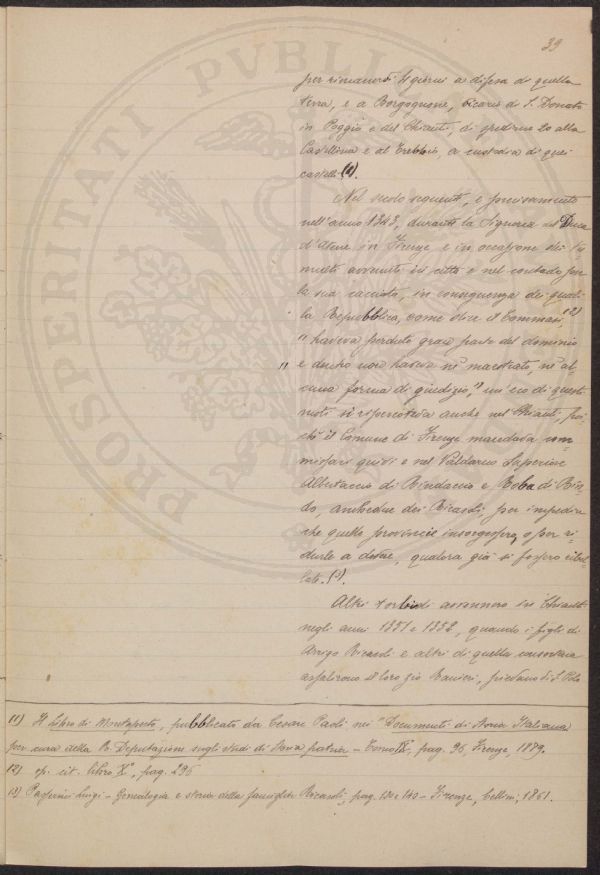 39
per rimanervi 4 giorni a difesa di quella
terra, e a Borgognone, vicario di S. Donato
in Poggio e del Chianti, di spedirne 20 alla
Castellina e al Trebbio, a custodia di quei
castelli (1).
Nel secolo seguente, e precisamente
nell'anno 1343, durante la Signoria del Duca
d'Atene in Firenze e in occasione dei tu-
multi avvenuti in città e nel contado per
la sua cacciata, in conseguenza dei quali
la Repubblica, come dice il Tommasi, (2)
"haveva perduto gran parte del dominio
e dentro non haveva nè maestrato, nè al-
cuna forma di giudizio," un eco di questi
moti si ripercoteva anche nel Chianti, poi-
chè il Comune di Firenze mandava com-
missari quivi e nel Valdarno Superiore
Albertaccio di Bindaccio e Boba di Bin-
do, ambedue dei Ricasoli, per impedire
che quelle provincie insorgessero, o per ri-
durle a dovere, qualora già si fossero ribel-
late. (3).
Altri torbidi avvennero in Chianti
negli anni 1351 e 1352, quando i figli di
Arrigo Ricasoli e altri di quella consorteria
assalirono il loro zio Ranieri, pievano di S. Polo
(1) Il Libro di Montaperti, pubblicato da Cesare Paoli nei "Documenti di Storia Italiana
per cura della R. Deputazione sugli studi di Storia patria – Tomo IX, pag. 96, Firenze, 1889.
(2) op. cit. libro X°, pag. 296
(3) Passerini Luigi – Genealogia e storia della famiglia Ricasoli, pag. 130 e 140 – Firenze, Cellini, 1861.
PROSPERITATI PVBLI